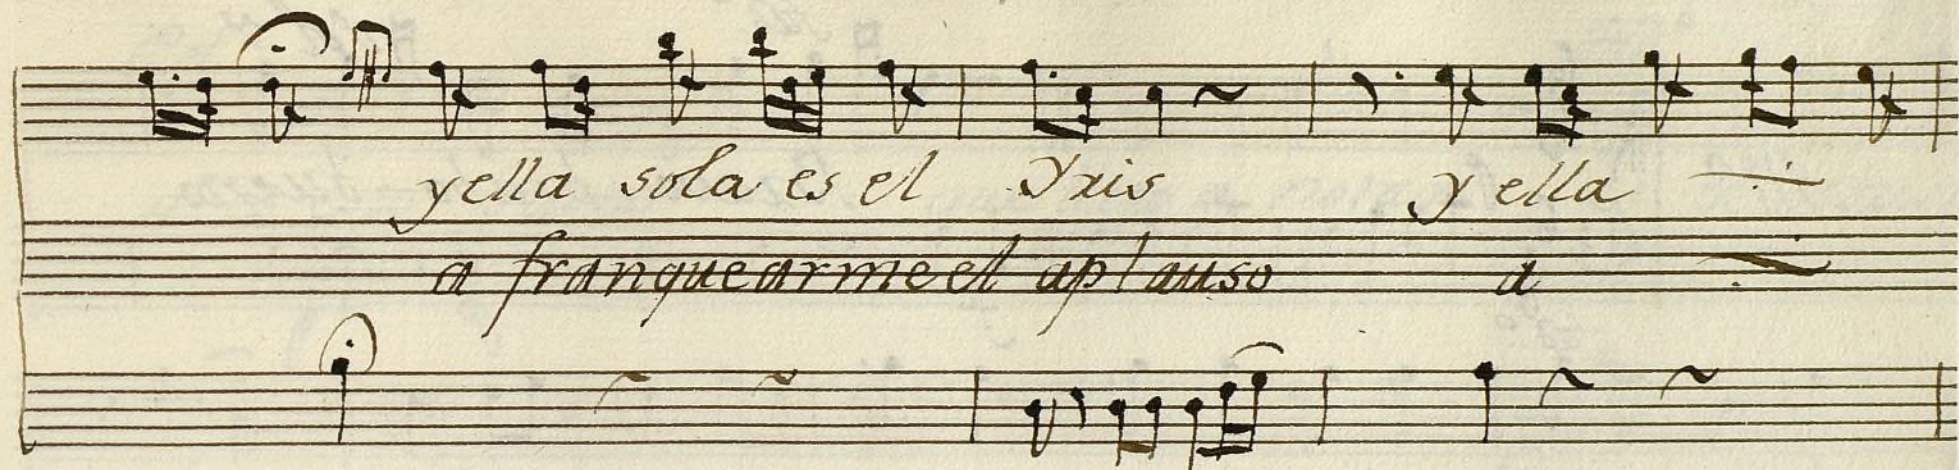 yella sola es el Yris y ella
a franquearme el aplauso a